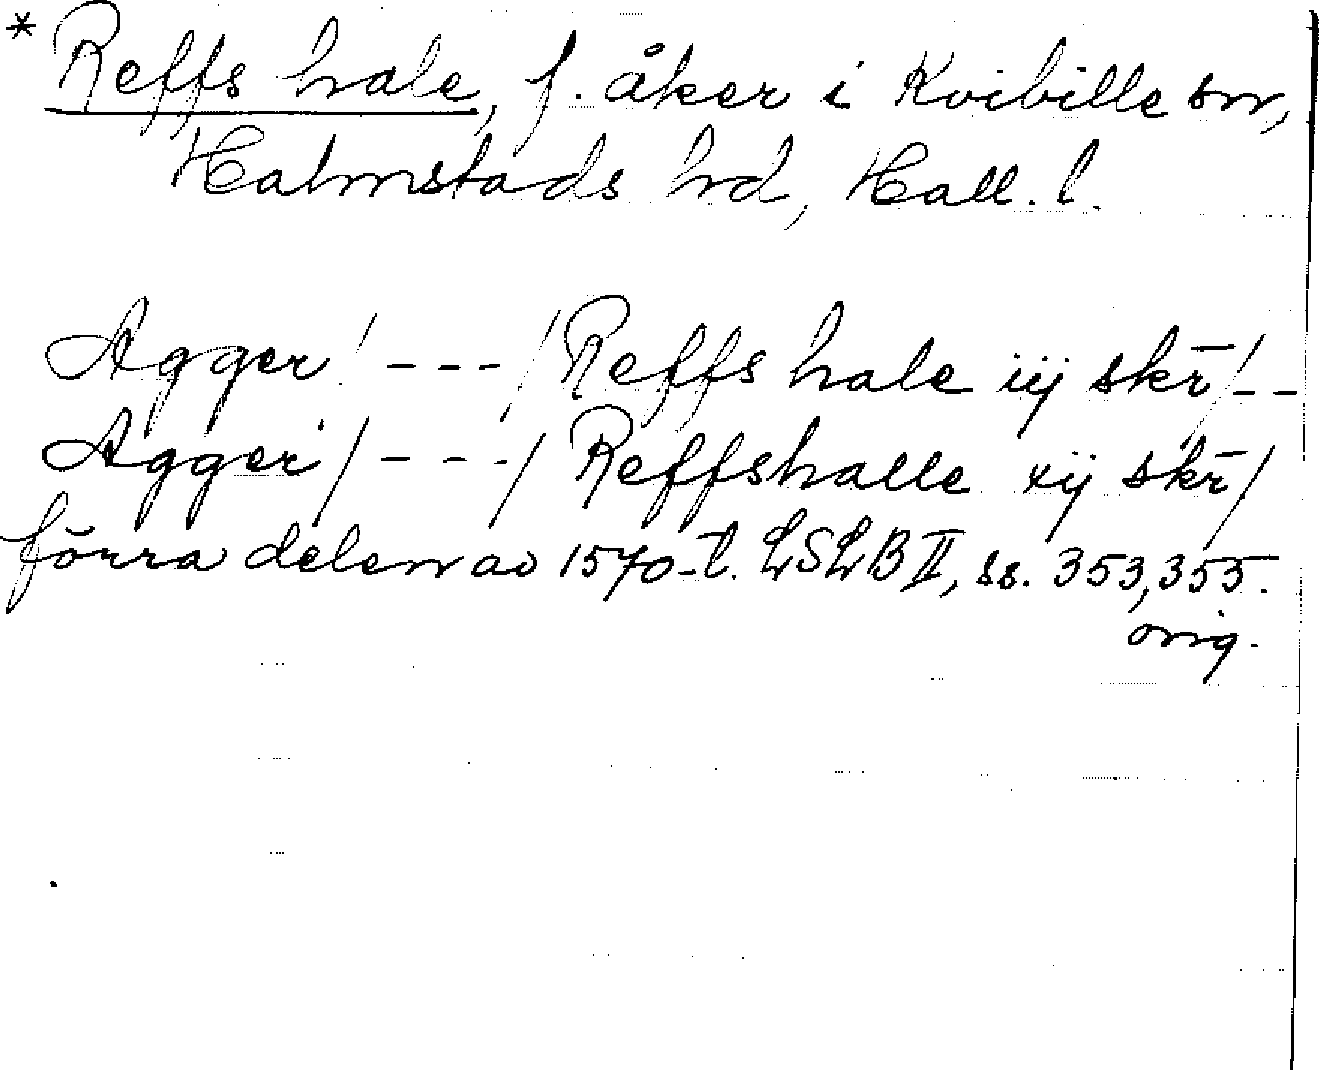 * Reffs hale, f. åker i Kvibille sn,
Halmstads hrd, Hall. l.
Agger / - - - / Reffs hale iij skr̄ / - -
Agger / - - - / Reffshalle xij skr̄ /
förra delen av 1570-t. LSLB II, ss. 353, 355.
orig.